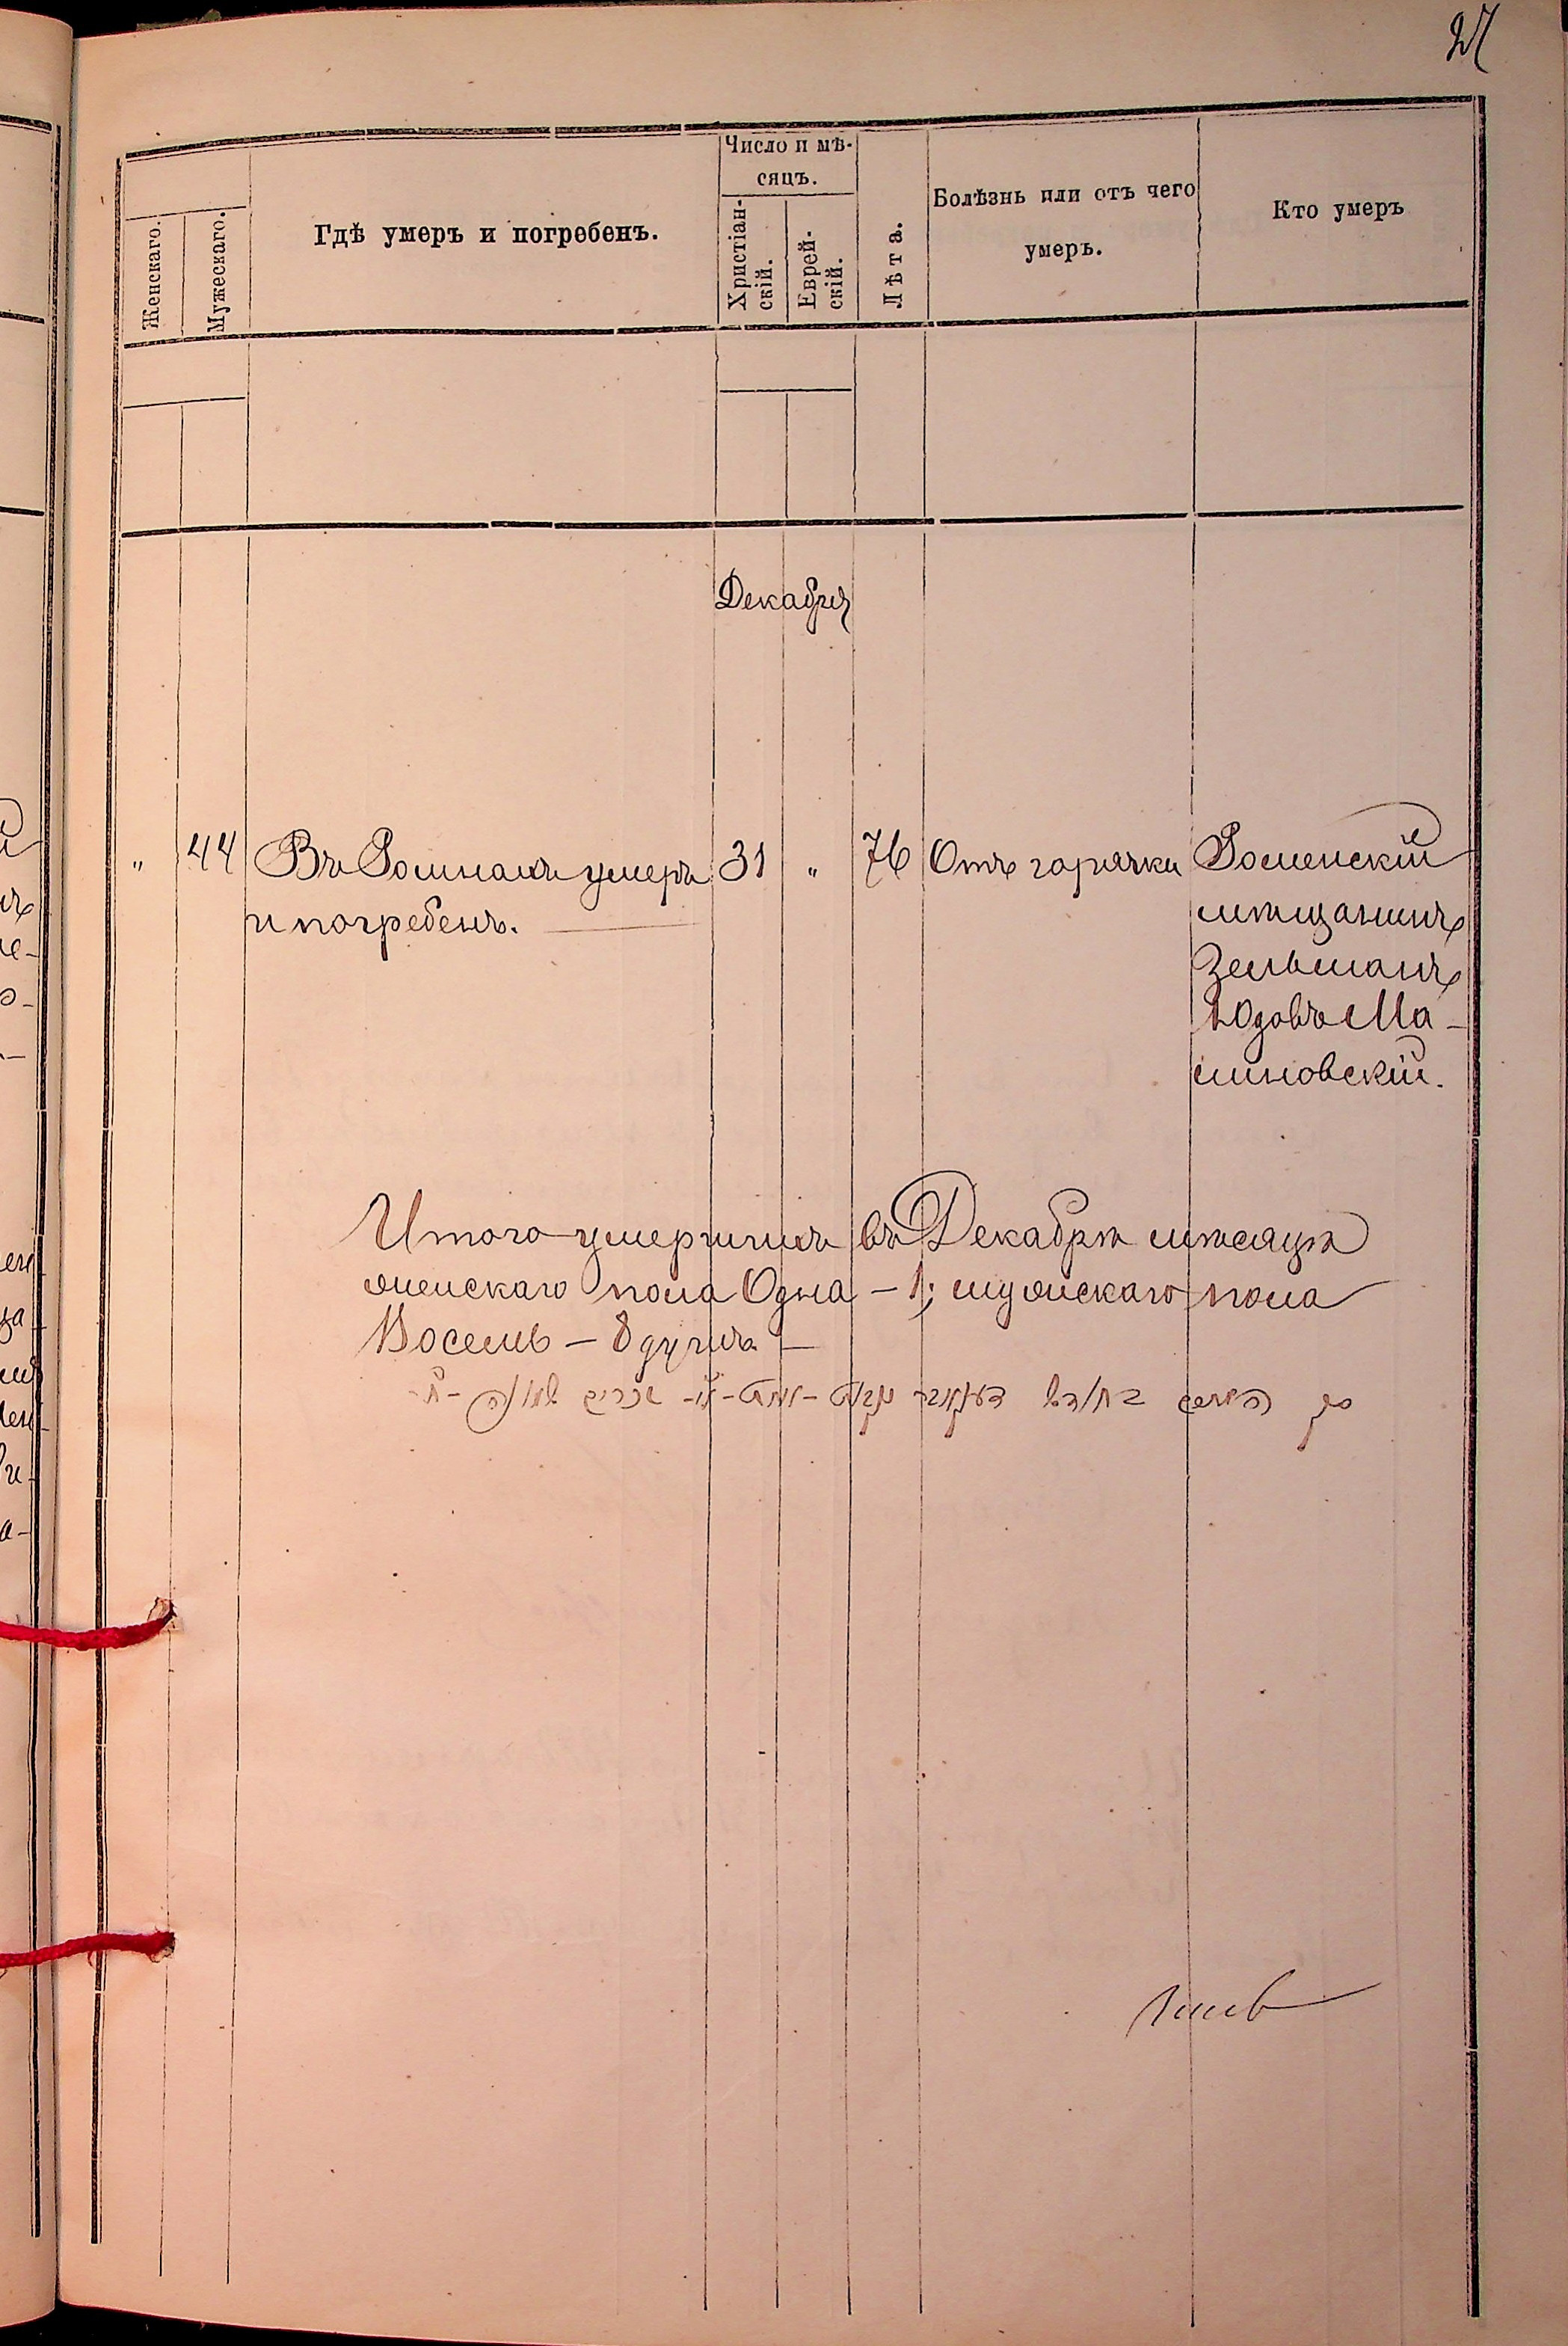 27
Женскаго.
Мужескаго.
Гдѣ умеръ и погребенъ.
Число и мѣ-
сяцъ.
Христіан-
скій.
Еврей-
скій.
Лѣта.
Болѣзнь или отъ чего
умеръ.
Кто умеръ
Декабря
" 44 Въ Ромнахъ умеръ 31 " 76 Отъ горячки Роменскій
и погребенъ.
мѣщанинъ
Зельманъ
Юдовъ Ма-
линовскій.
Итого умершихъ въ Декабрѣ мѣсяцѣ
женскаго пола Одна – 1; мужскаго пола
Восемь – 8 душъ –